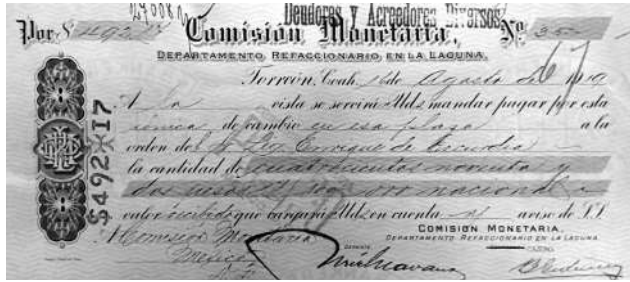 27008
Deudores y Acreedores Diversos
Por $ 492.17 Comisión Monetaria, No. 35
DEPARTAMENTO REFACCIONARIO EN LA LAGUNA.
Torreón, Coah. 16 de Agosto de 1919
A la vista se servirá Uds mandar pagar por esta
de cambio en esa plaza a la
orden de Enrique de
la cantidad de cuatrocientos noventa y
dos pesos 17/100 oro nacional
valor recibido que cargará Uds en cuenta aviso de S.S.
$492.17
A Comisión Monetaria
México
D.F.
COMISION MONETARIA.
DEPARTAMENTO REFACCIONARIO EN LA LAGUNA.
GERENTE
CAJERO